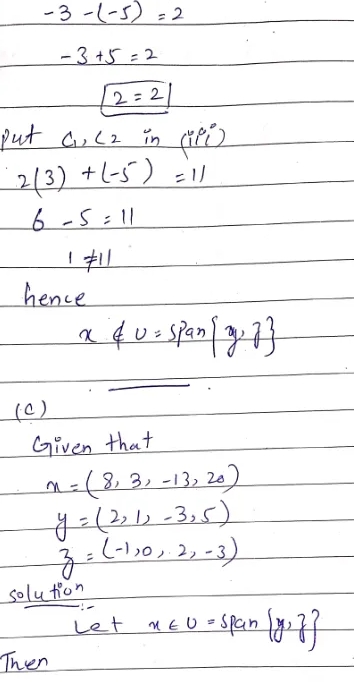 -3 -(-5) = 2
-3 +5 = 2
2 = 2
put C₁, C2 in (iii)
2(3) + (-5) = 11
6 - 5 = 11
1 ≠ 11
hence
x ∉ U = span{y, z}
(C)
Given that
x = (8, 3, -13, 20)
y = (2, 1, -3, 5)
z = (-1, 0, 2, -3)
solution :-
Let x ∈ U = span{y, z}
Then